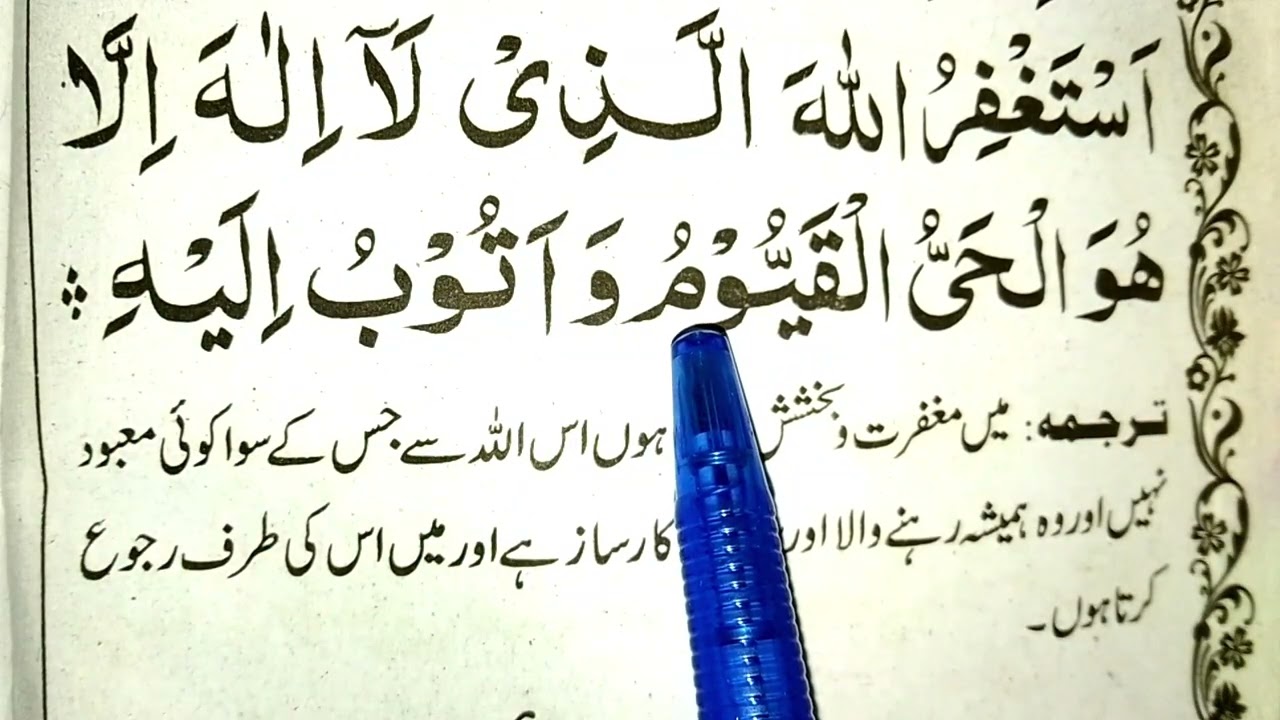 اَسْتَغْفِرُ اللهَ الَّذِىْ لَآ اِلٰهَ اِلَّا
هُوَ الْحَىُّ الْقَيُّوْمُ وَ اَتُوْبُ اِلَيْهِ
ترجمہ: میں مغفرت و بخشش ہوں اس اللہ سے جس کے سوا کوئی معبود
نہیں اور وہ ہمیشہ رہنے والا اور کارساز ہے اور میں اس کی طرف رجوع
کرتا ہوں۔